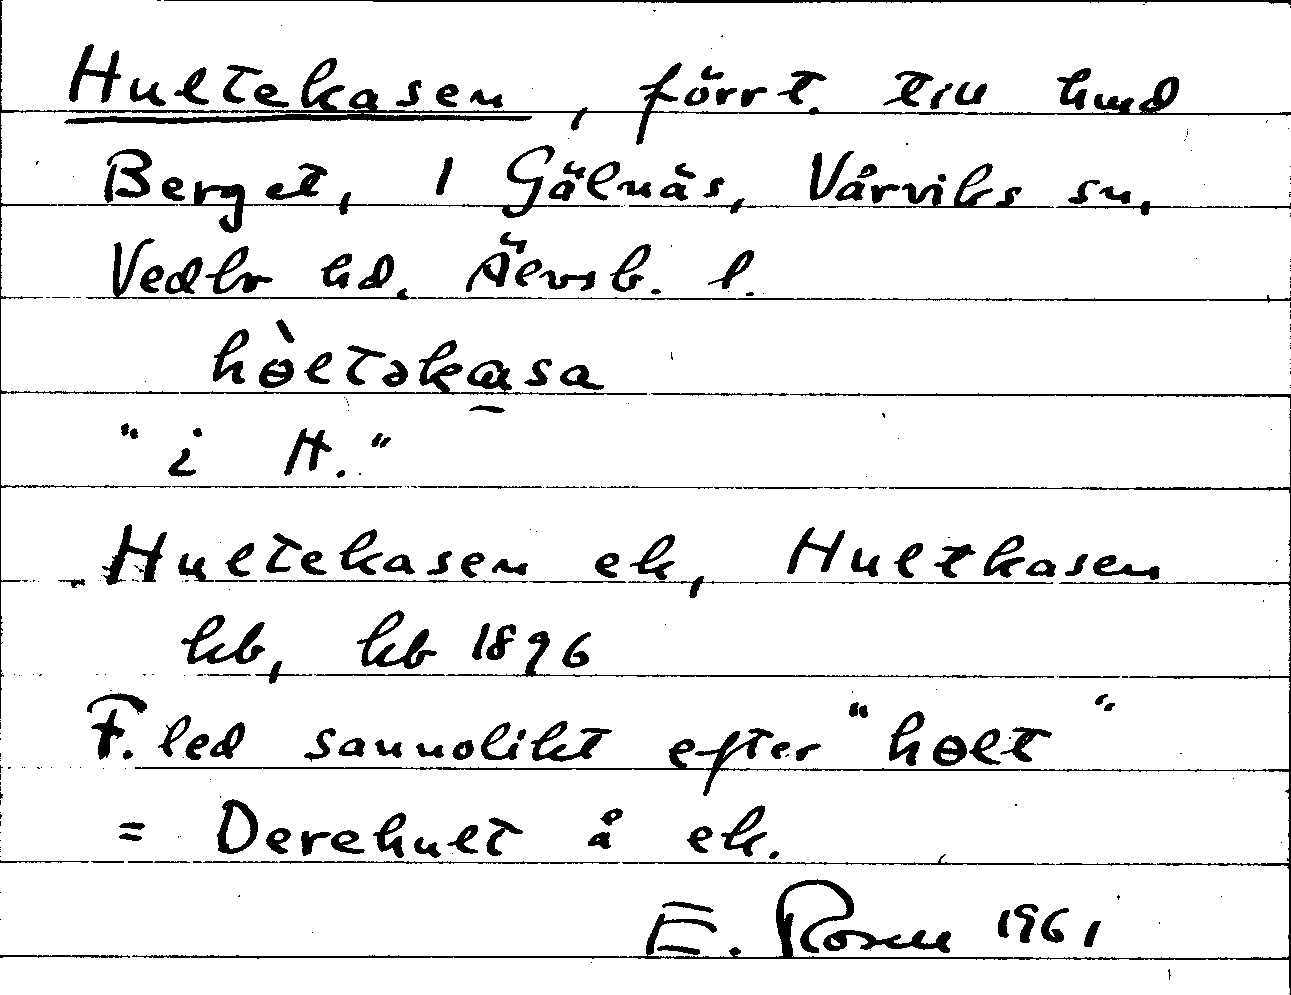 Hultekasen, förrt. till hmd
Berget, 1 Gälnäs, Vårviks sn,
Vedbo hd. Älvsb. l.
hɵ̀ltəkasa
"i H."
Hultekasen ek, Hultkasen
kb, kb 1896
F. led sannolikt efter "hɵlt"
= Derehult å ek.
E. Rosen 1961